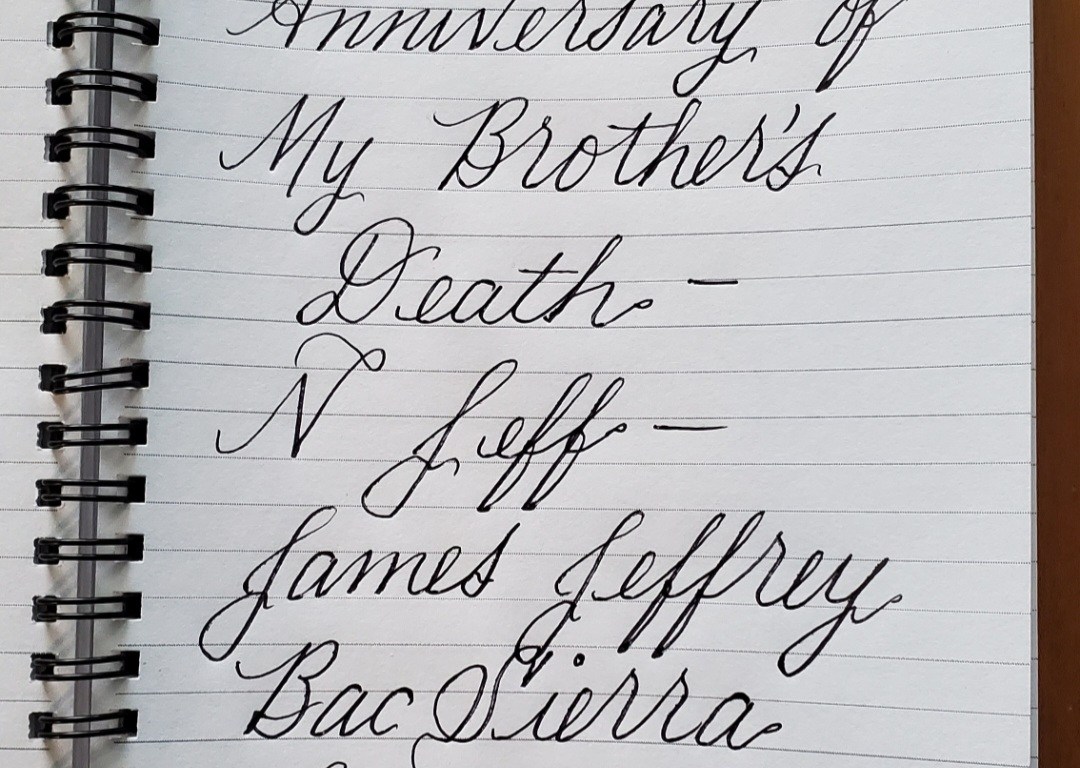 Anniversary of
My Brother's
Death -
N Jeff -
James Jeffrey
Bac Sierra